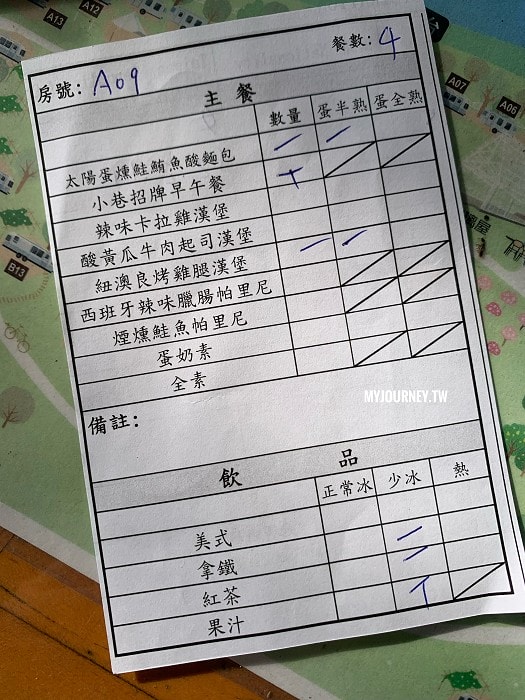 房號: A09 餐數: 4
主餐
數量 蛋半熟 蛋全熟
太陽蛋燻鮭鮪魚酸麵包 一 一
小巷招牌早午餐 T
辣味卡拉雞漢堡
酸黃瓜牛肉起司漢堡
紐澳良烤雞腿漢堡 一 一
西班牙辣味臘腸帕里尼
煙燻鮭魚帕里尼
蛋奶素
全素
MYJOURNEY.TW
備註:
飲品
正常冰 少冰 熱
美式
拿鐵 一
紅茶 一
果汁 T
A13
A12
A11
A07
A06
B13